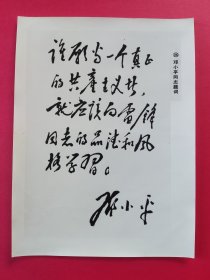 谁愿当一个真正
的共产主义者，
就应该向雷锋
同志的品德和风
格学习。
邓小平
邓小平同志题词